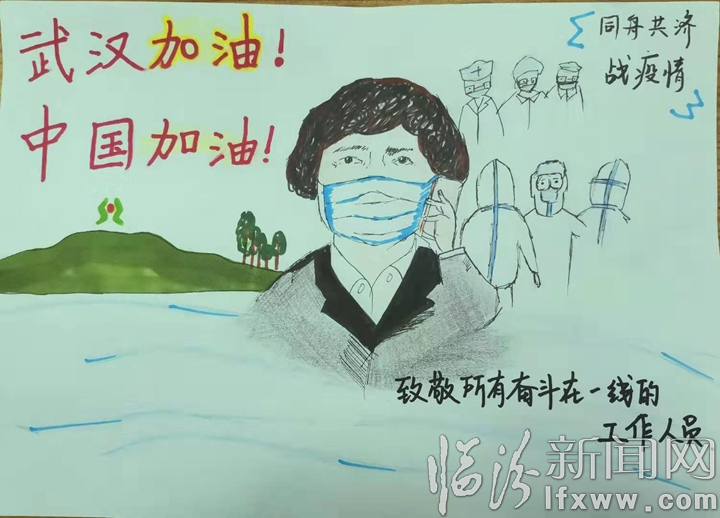 武汉加油！
中国加油！
同舟共济
战疫情
致敬所有奋斗在一线的
工作人员
临汾新闻网
lfxww.com